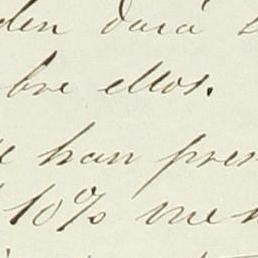 den dará
bre ellos.
han pres
10% me